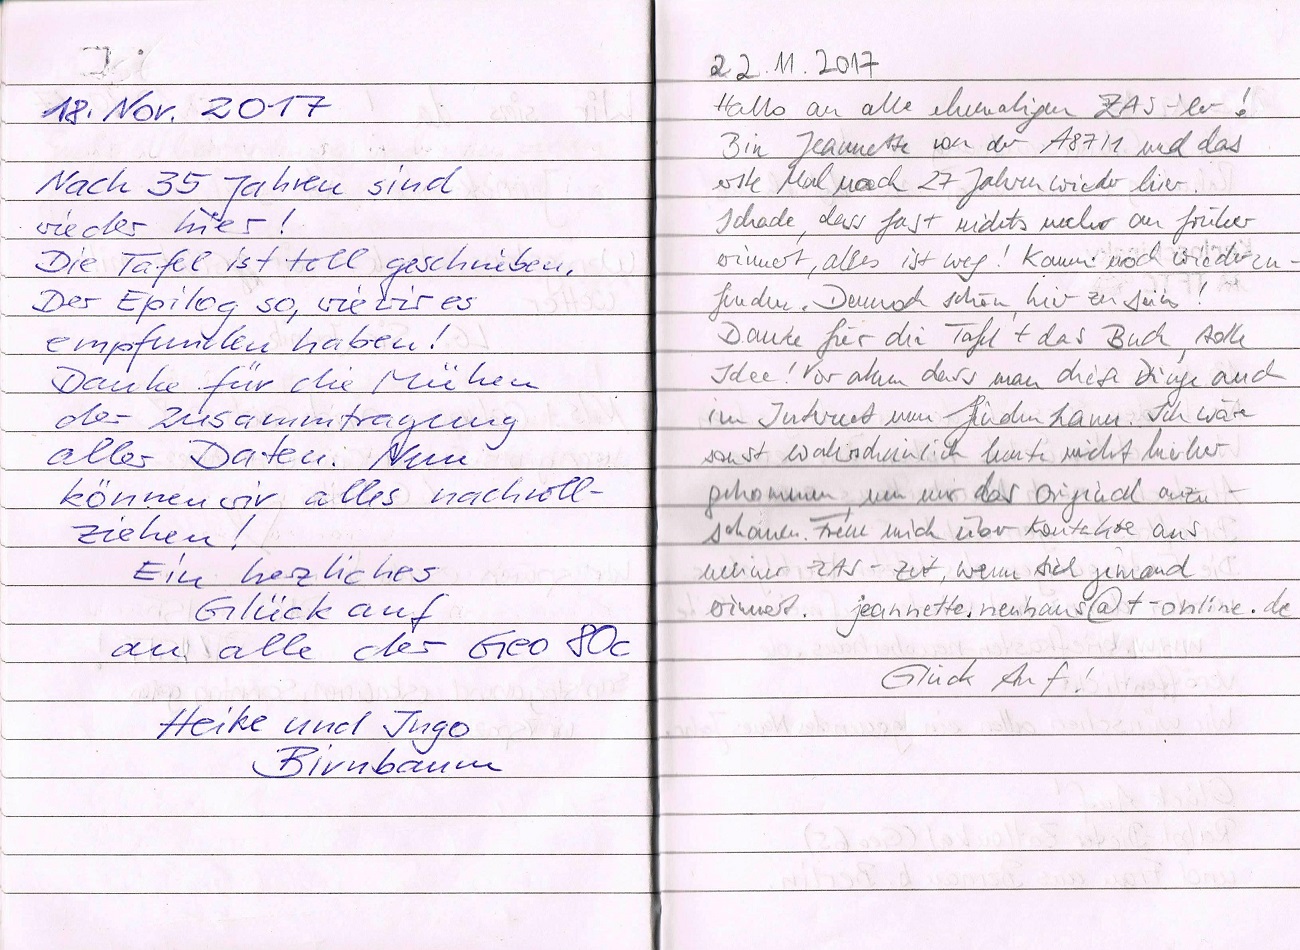 18. Nov. 2017
Nach 35 Jahren sind
wieder hier!
Die Tafel ist toll geschrieben.
Der Epilog so, wie wir es
empfunden haben!
Danke für die Mühen
der Zusammtragung
aller Daten. Nun
können wir alles nachvoll-
ziehen!
Ein herzliches
Glück auf
an alle der Geo 80c
Heike und Ingo
Birnbaum
22.11.2017
Hallo an alle ehemaligen ZAS-ler!
Bin Jeannette von der A87/1 und das
erste Mal nach 27 Jahren wieder hier.
Schade, dass fast nichts mehr an früher
erinnert, alles ist weg! Kaum noch wiederzu-
finden. Dennoch schön hier zu sein!
Danke für die Tafel + das Buch, tolle
Idee! Vor allem dass man diese Dinge auch
im Internet nun finden kann. Ich wäre
sonst wahrscheinlich heute nicht hierher
gekommen, um mir das Original anzu-
schauen. Freue mich über Kontakte aus
meiner ZAS-Zeit, wenn sich jemand
erinnert. jeannette.neuhaus@t-online.de
Glück Auf!